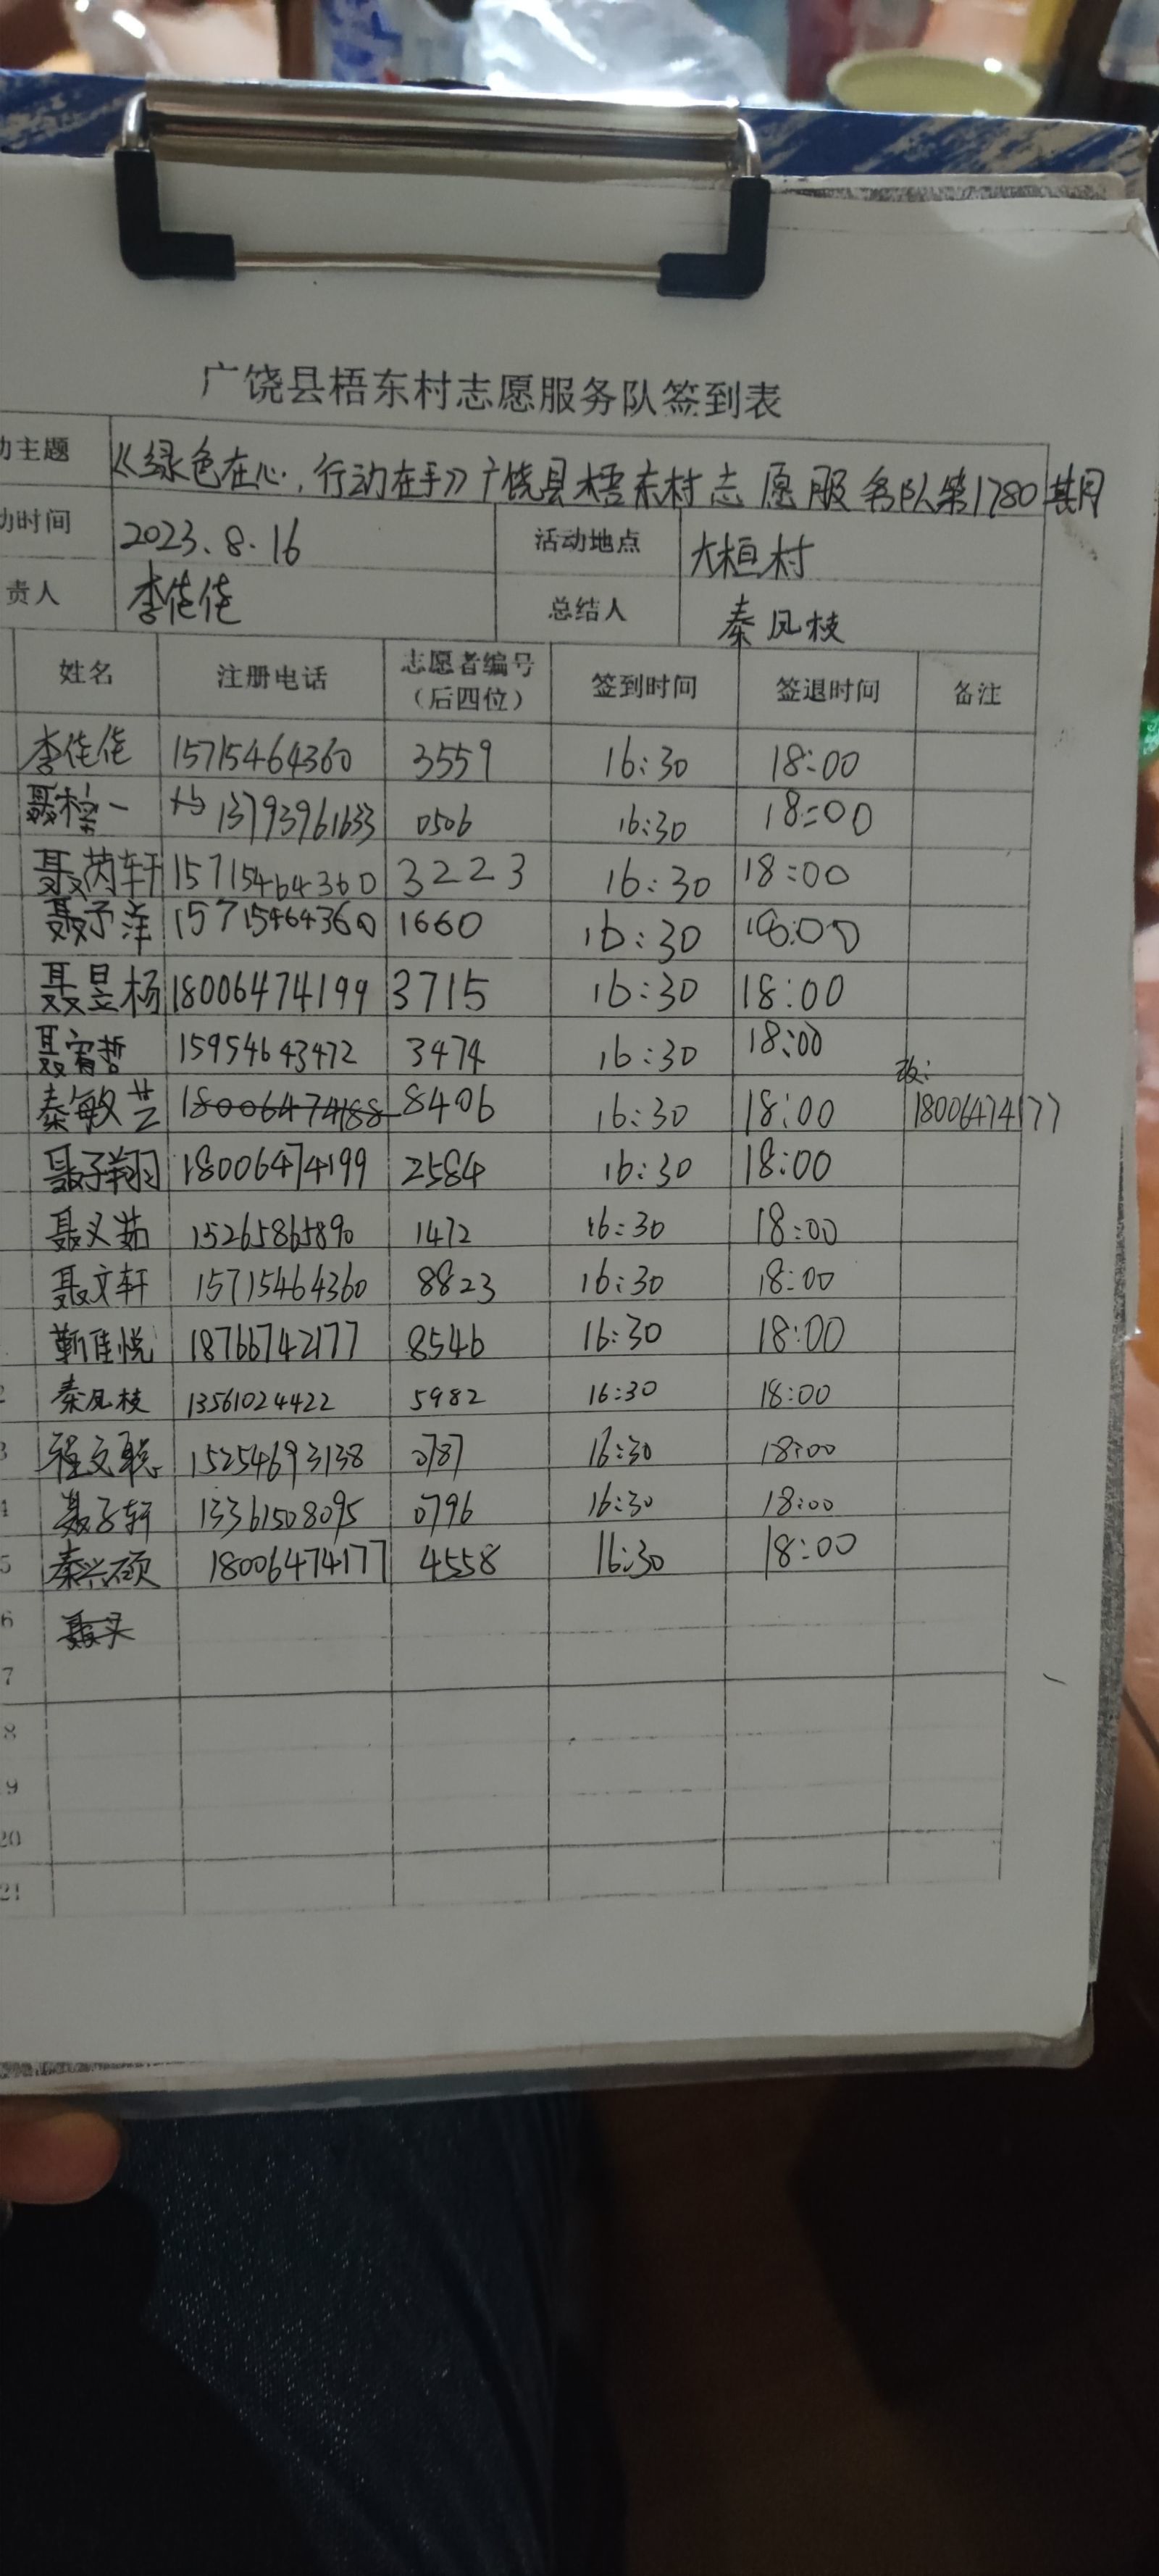 广饶县梧东村志愿服务队签到表
动主题 《绿色在心，行动在手》广饶县梧东村志愿服务队第1780期
动时间 2023.8.16 活动地点 大桓村
责人 李佳佳 总结人 秦凤枝
姓名 注册电话 志愿者编号（后四位） 签到时间 签退时间 备注
李佳佳 15715464360 3559 16:30 18:00
聂 一 13793961633 0506 16:30 18:00
聂芮轩 15715464360 3223 16:30 18:00
聂予洋 15715464360 1660 16:30 18:00
聂昱杨 18006474199 3715 16:30 18:00
聂宥哲 15954643472 3474 16:30 18:00
秦敏芝 18006474188 8406 16:30 18:00 改: 18006474177
聂子翔 18006474199 2584 16:30 18:00
聂义茹 15265865890 1472 16:30 18:00
聂文轩 15715464360 8823 16:30 18:00
靳佳悦 18766742177 8546 16:30 18:00
2 秦凤枝 13561024422 5982 16:30 18:00
3 程文聪 15254693138 0787 16:30 18:00
4 聂子轩 13361508095 0796 16:30 18:00
5 秦兴硕 18006474177 4558 16:30 18:00
6 聂
7
8
9
20
21